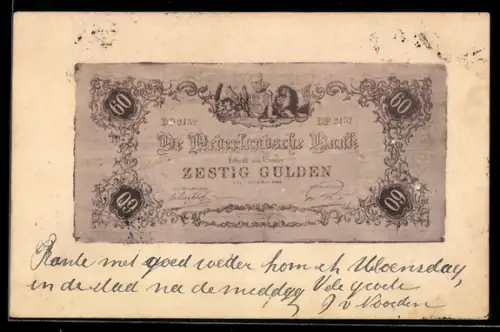 60
60
DP 2152 DP 2152
De Nederlandsche Bank
betaalt aan Toonder
ZESTIG GULDEN
60
60
met goed weder kom ik Woensdag,
in de stad na de middag Vele groete
J v Noorden